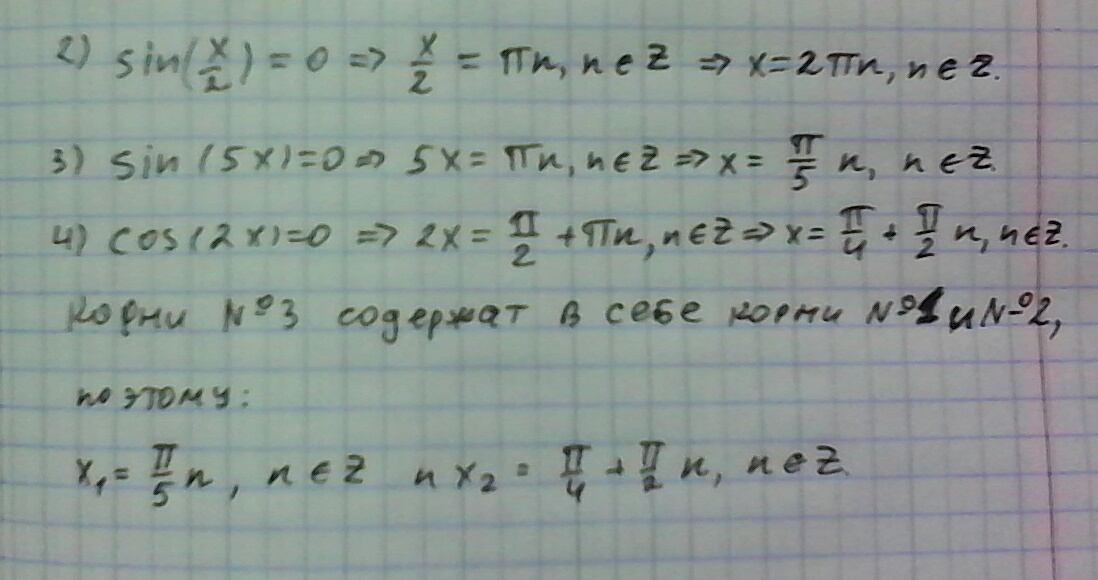 2) sin(x/2) = 0 => x/2 = πn, n∈Z => x=2πn, n∈Z.
3) sin(5x)=0 => 5x = πn, n∈Z => x = π/5 n, n∈Z.
4) cos(2x)=0 => 2x = π/2 + πn, n∈Z => x = π/4 + π/2 n, n∈Z.
корни №3 содержат в себе корни №1 и №2,
поэтому:
x₁ = π/5 n, n∈Z и x₂ = π/4 + π/2 n, n∈Z.